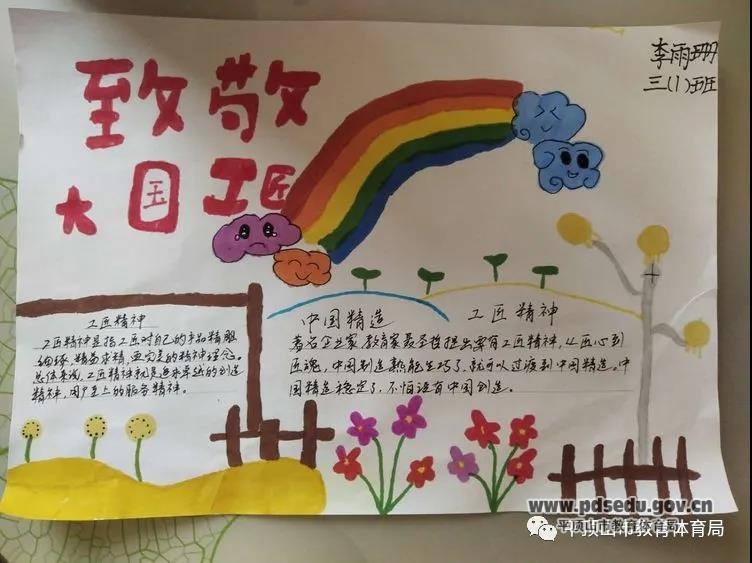 致敬
大国工匠
李雨珊
三(1)班
工匠精神
工匠精神是指工匠对自己的产品精雕
细琢,精益求精,更完美的精神理念。
总体来说,工匠精神就是追求卓越的创造
精神,用户至上的服务精神。
中国精造 工匠精神
著名企业家、教育家聂圣哲提出要有工匠精神,从匠心到
匠魂,中国制造熟能生巧了,就可以过渡到中国精造。中
国精造稳定了,不怕没有中国创造。
www.pdsedu.gov.cn
平顶山市教育体育局
平顶山市教育体育局